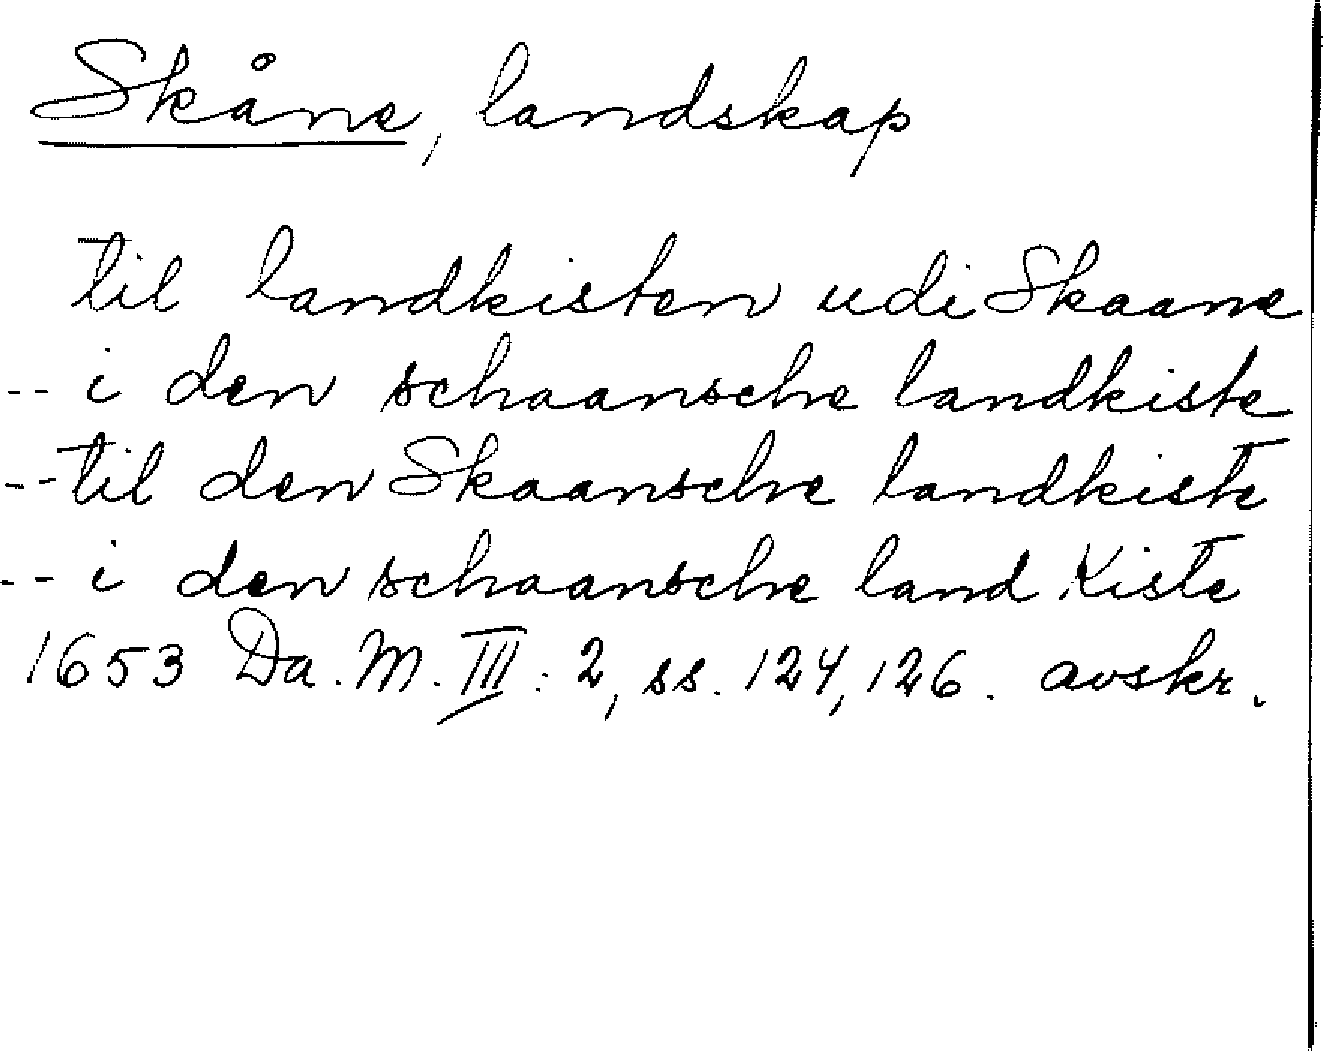 Skåne, landskap
til landkisten udi Skaane
-- i den schaansche landkiste
-- til den Skaansche landkiste
-- i den schaansche land Kiste
1653 Da. M. III: 2, ss. 124, 126. avskr.